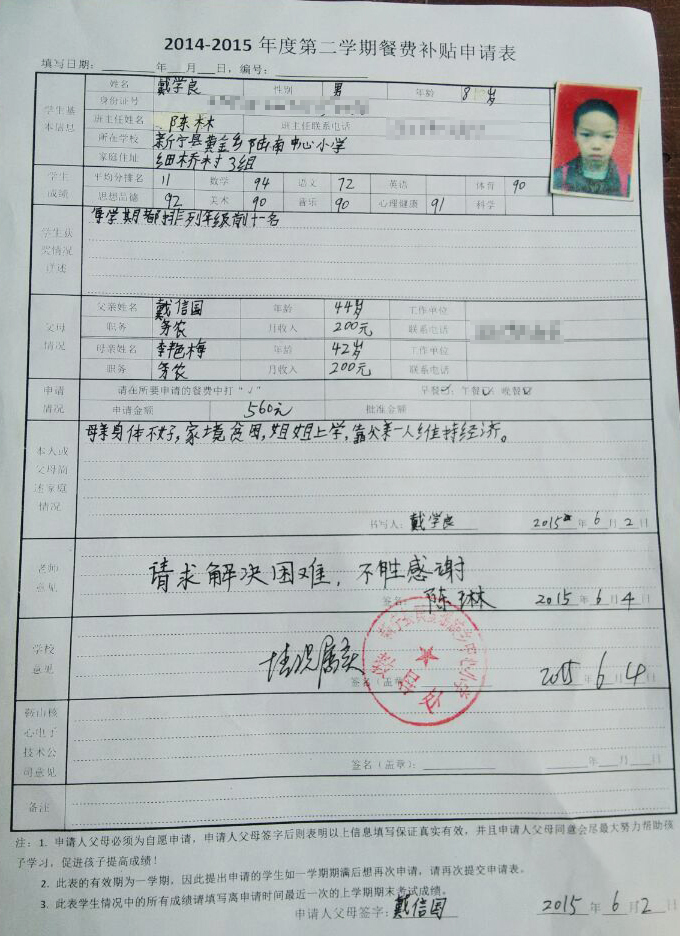 2014-2015 年度第二学期餐费补贴申请表
填写日期：年 月 日，编号：
姓名 戴学良 性别 男 年龄 8 岁
身份证号
学生基本信息
班主任姓名 陈林 班主任联系电话
所在学校 新宁县黄金乡陆南中心小学
家庭住址 细桥村3组
学生成绩
平均分排名 11 数学 94 语文 72 英语 体育 90
思想品德 92 美术 90 音乐 90 心理健康 91 科学
学生获奖情况详述
每学期都排列年级前十名
父母情况
父亲姓名 戴信国 年龄 44岁 工作单位
职务 务农 月收入 200元 联系电话
母亲姓名 李艳梅 年龄 42岁 工作单位
职务 务农 月收入 200元 联系电话
申请情况
请在所要申请的餐费中打“√” 早餐☑；午餐☑；晚餐☑
申请金额 560元 批准金额
本人或父母简述家庭情况
母亲身体不好，家境贫困，姐姐上学，靠父亲一人维持经济。
书写人：戴学良 2015年 6 月 2 日
老师意见
请求解决困难，不胜感谢
签名： 陈琳 2015 年 6 月 4 日
学校意见
情况属实
签名（盖章） 2015 年 6 月 4 日
鞍山核心电子技术公司意见
签名（盖章）： 年 月 日
备注
注：1. 申请人父母必须为自愿申请，申请人父母签字后则表明以上信息填写保证真实有效，并且申请人父母同意会尽最大努力帮助孩
子学习，促进孩子提高成绩！
2. 此表的有效期为一学期，因此提出申请的学生如一学期期满后想再次申请，请再次提交申请表。
3. 此表学生情况中的所有成绩请填写离申请时间最近一次的上学期期末考试成绩。
申请人父母签字：戴信国 2015 年 6 月 2 日